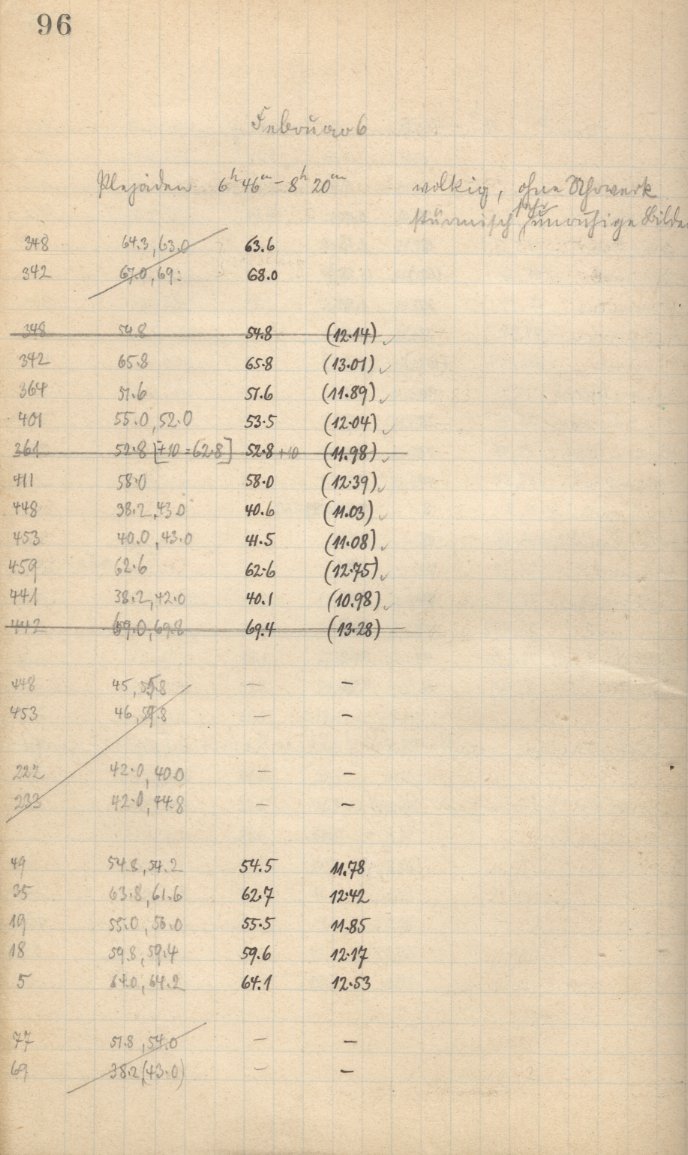 96
Februar 6
Plejaden 6h 46m - 8h 20m wolkig, ohne Uhrwerk
stürmisch, sehr unruhige Bilder
348 64.3, 63.0 63.6
342 67.0, 69: 68.0
348 54.8 54.8 (12.14)
342 65.8 65.8 (13.01)
364 51.6 51.6 (11.89)
401 55.0, 52.0 53.5 (12.04)
361 52.8 [+10 = 62.8] 52.8 +10 (11.98)
411 58.0 58.0 (12.39)
448 38.2, 43.0 40.6 (11.03)
453 40.0, 43.0 41.5 (11.08)
459 62.6 62.6 (12.75)
441 38.2, 42.0 40.1 (10.98)
442 69.0, 69.8 69.4 (13.28)
448 45, – –
453 46, – –
222 42.0, 40.0 – –
233 42.0, 44.8 – –
49 54.8, 54.2 54.5 11.78
35 63.8, 61.6 62.7 12.42
19 55.0, 56.0 55.5 11.85
18 59.8, 59.4 59.6 12.17
5 64.0, 64.2 64.1 12.53
77 51.8, 54.0 – –
69 38.2 (43.0) – –